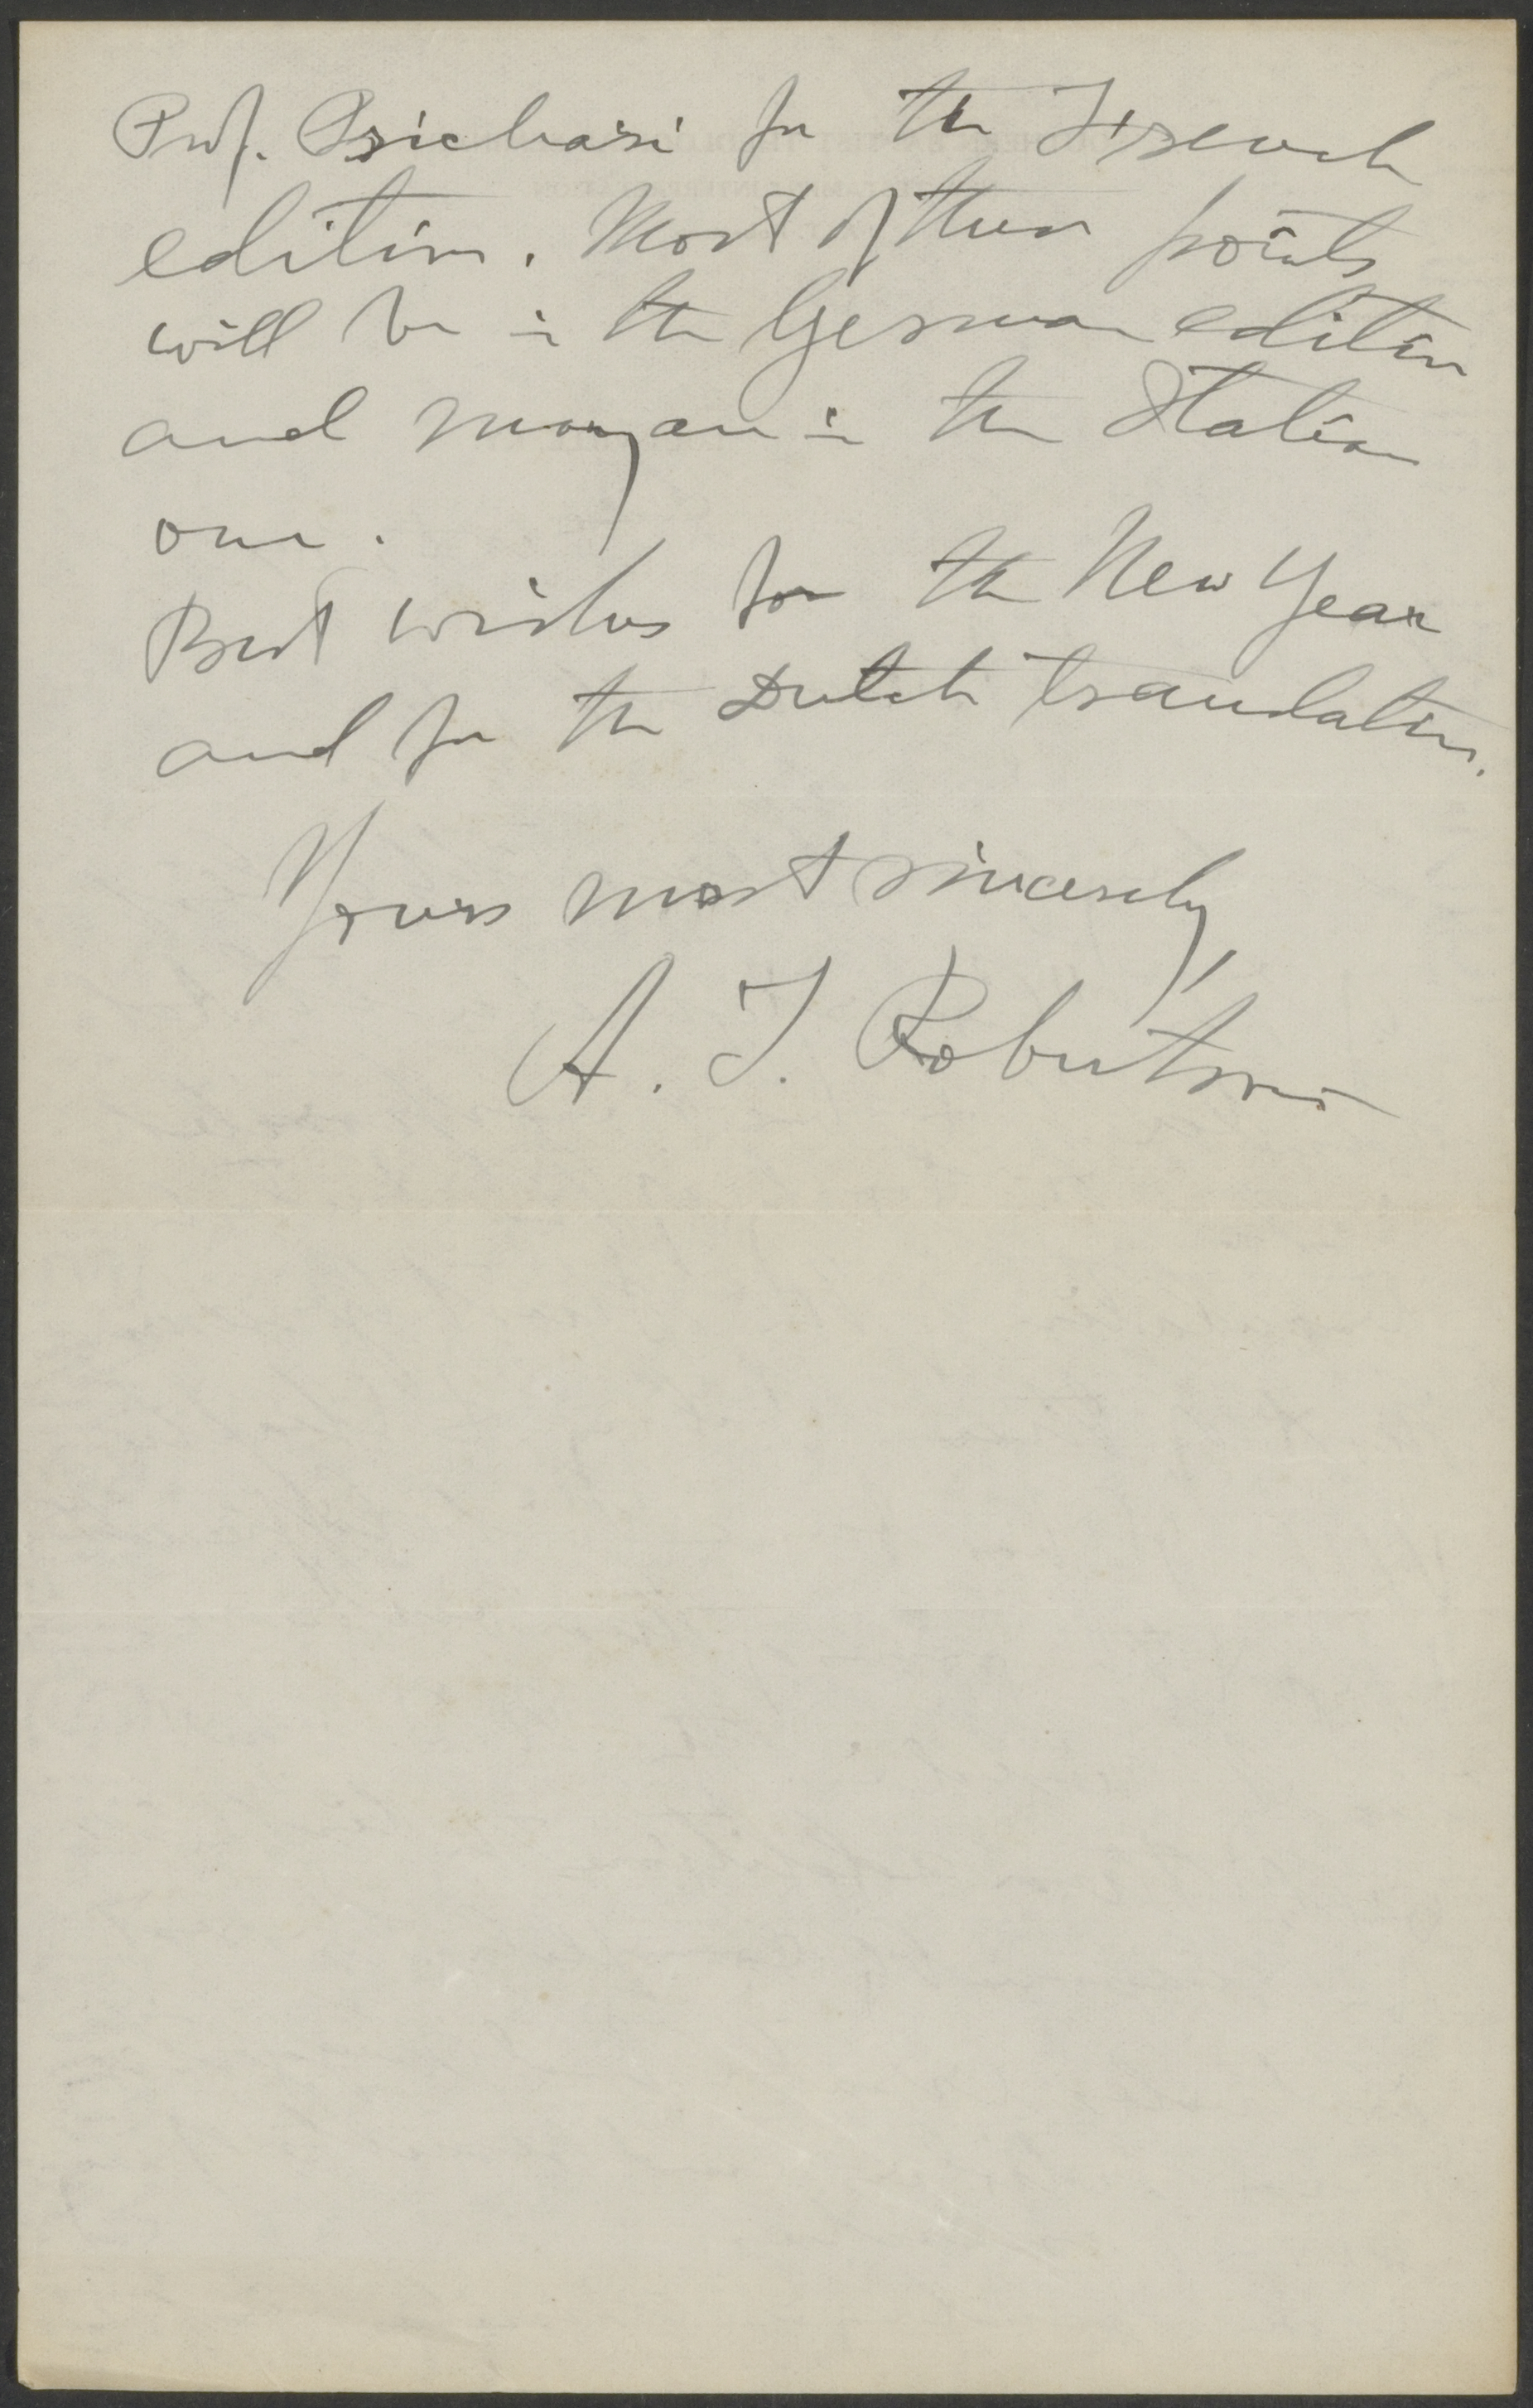 Prof. Psichari for the French
edition. Most of these points
will be in the German edition
and many are in the Italian
one.
Best wishes for the New Year
and for the Dutch translation.
Yours most sincerely,
A. T. Robertson